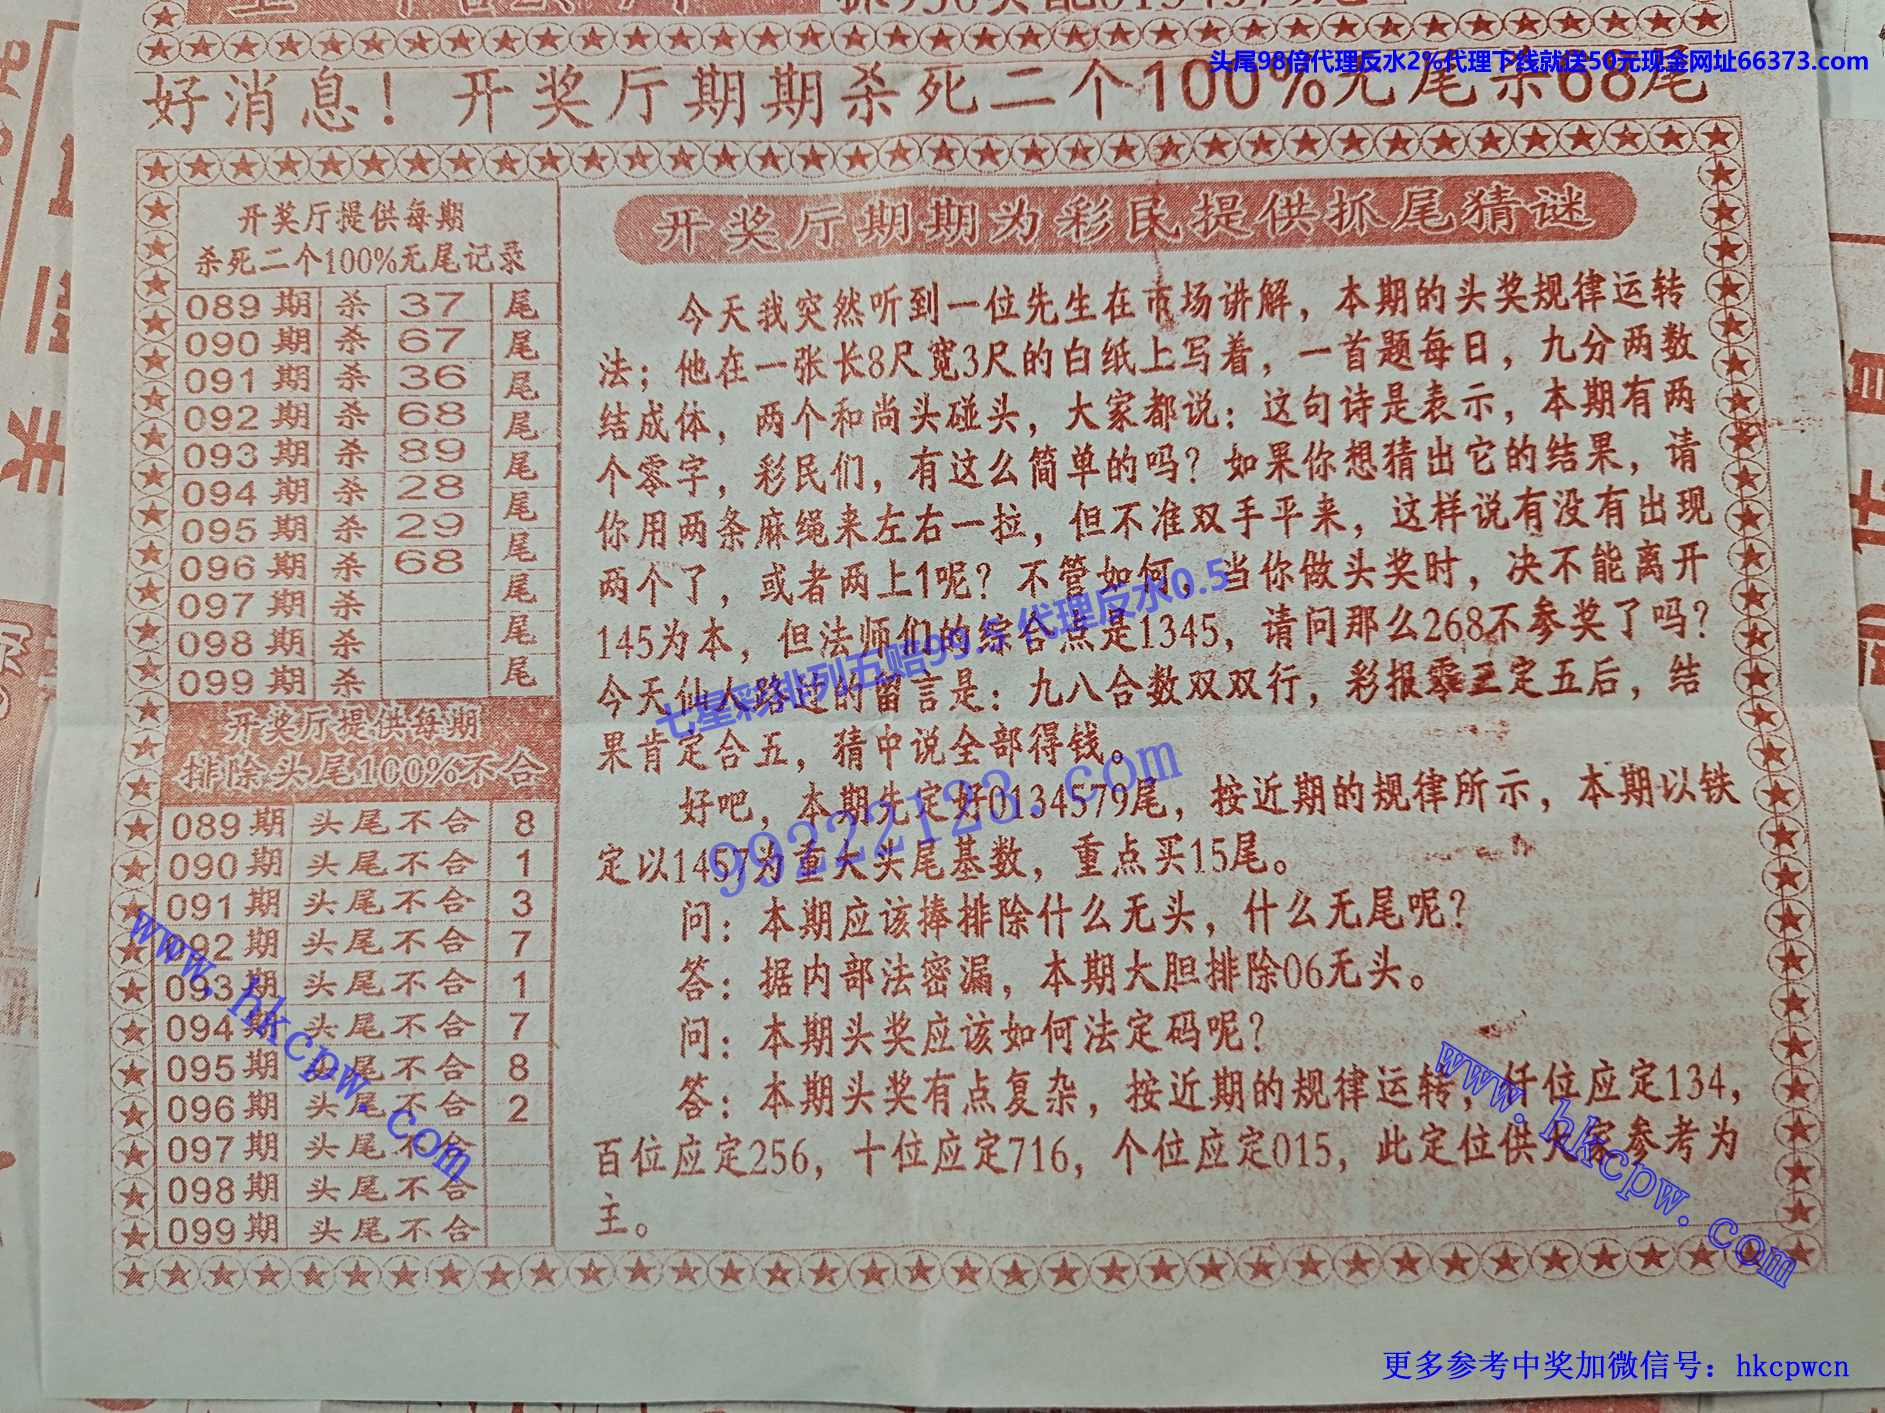 头尾98倍代理反水2%代理下线就送50元现金网址66373.com
好消息！开奖厅期期杀死二个100%无尾杀68尾
开奖厅提供每期
杀死二个100%无尾记录
089期 杀 37 尾
090期 杀 67 尾
091期 杀 36 尾
092期 杀 68 尾
093期 杀 89 尾
094期 杀 28 尾
095期 杀 29 尾
096期 杀 68 尾
097期 杀 尾
098期 杀 尾
099期 杀 尾
开奖厅提供每期
排除头尾100%不合
089期 头尾不合 8
090期 头尾不合 1
091期 头尾不合 3
092期 头尾不合 7
093期 头尾不合 1
094期 头尾不合 7
095期 头尾不合 8
096期 头尾不合 2
097期 头尾不合
098期 头尾不合
099期 头尾不合
开奖厅期期为彩民提供抓尾猜谜
今天我突然听到一位先生在市场讲解，本期的头奖规律运转
法；他在一张长8尺宽3尺的白纸上写着，一首题每日，九分两数
结成体，两个和尚头碰头，大家都说：这句诗是表示，本期有两
个零字，彩民们，有这么简单的吗？如果你想猜出它的结果，请
你用两条麻绳来左右一拉，但不准双手平来，这样说有没有出现
两个了，或者两上1呢？不管如何，当你做头奖时，决不能离开
145为本，但法师们的综合点是1345，请问那么268不参奖了吗？
今天仙人路过的留言是：九八合数双双行，彩报零三定五后，结
果肯定合五，猜中说全部得钱。
好吧，本期先定好0134579尾，按近期的规律所示，本期以铁
定以1457为重大头尾基数，重点买15尾。
问：本期应该捧排除什么无头，什么无尾呢？
答：据内部法密漏，本期大胆排除06无头。
问：本期头奖应该如何法定码呢？
答：本期头奖有点复杂，按近期的规律运转，仟位应定134，
百位应定256，十位应定716，个位应定015，此定位供大家参考为
主。
七星彩排列五赔99.5代理反水0.5
99222123.com
www.hkcpw.com
www.hkcpw.com
更多参考中奖加微信号：hkcpwcn